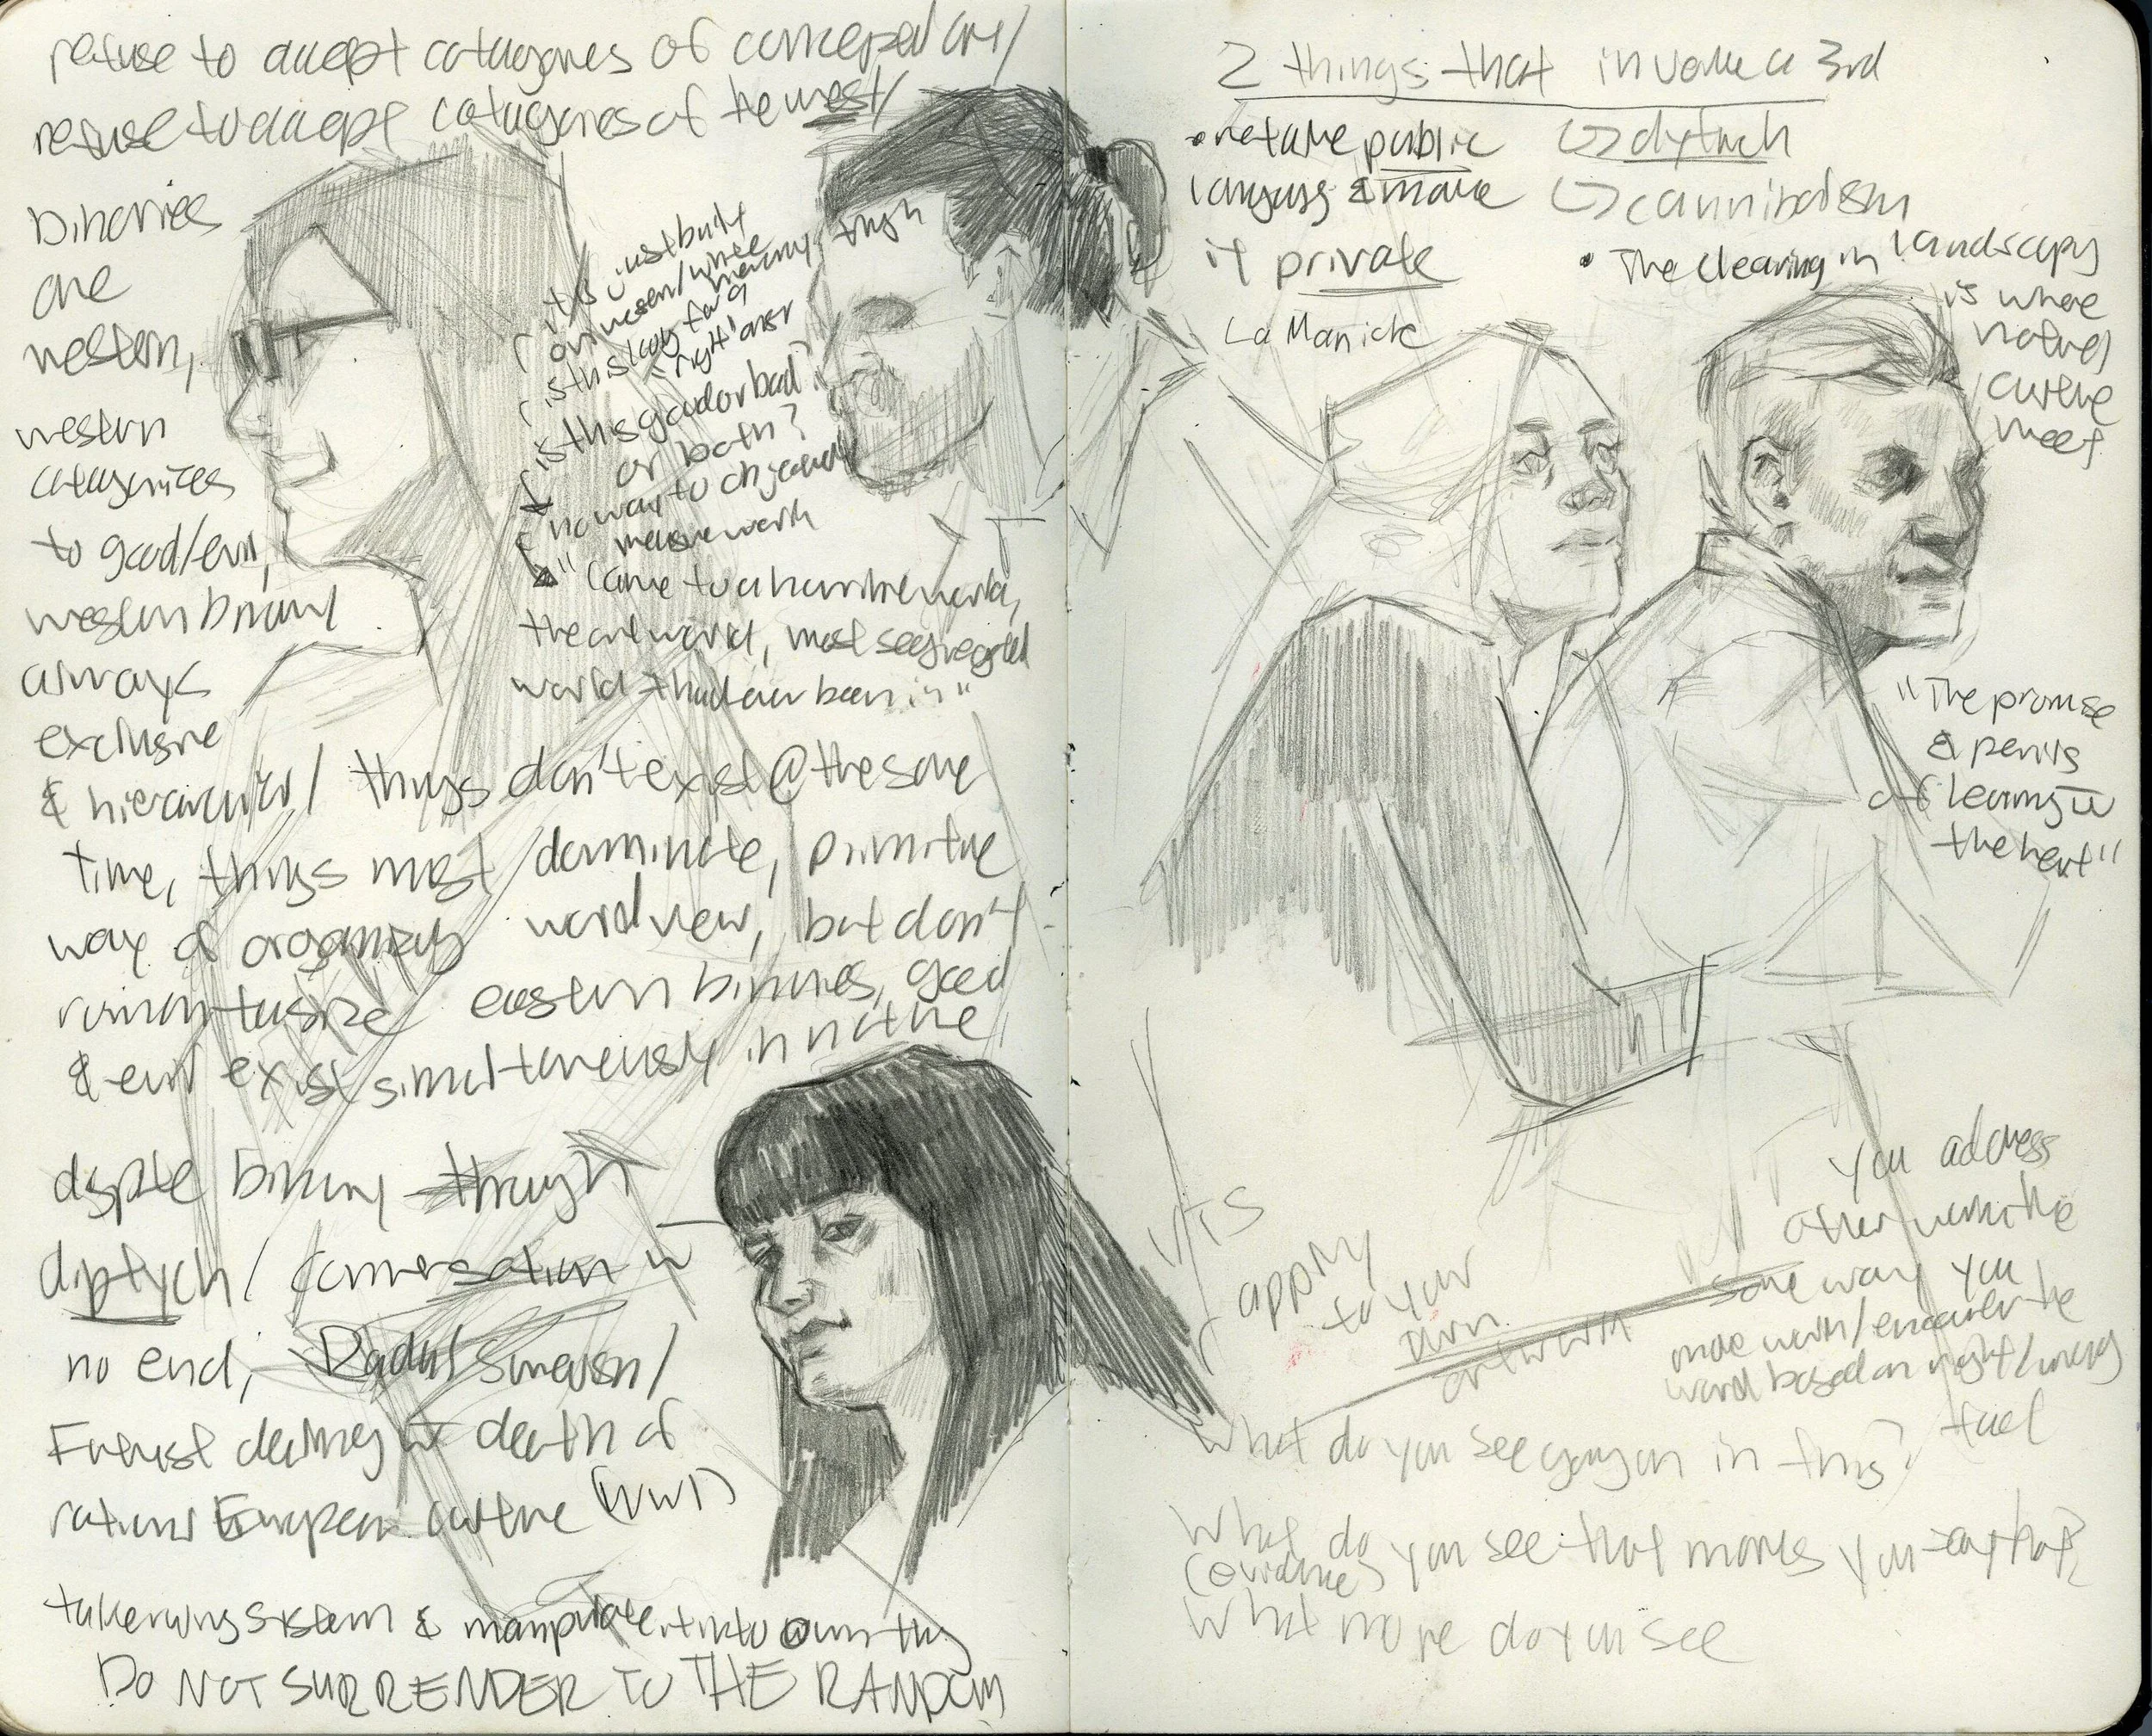 refuse to accept catagories of conceptual art/
refuse to accept catagories of the west/
Binaries
are
western,
western
catagorizes
to good/evil,
western binary
always
exclusive
& hierarchical/ things don't exist @ the same
time, things most dominate, primitive
way of organizing world view, but don't
romantasize eastern binaries, good
& evil exist simultaneously in nature
it's just built
on western/white
is this looking for a
"right" answer
is this good or bad?
or both?
no way to objectively
measure worth
"Came to a horrible world,
the art world, most segregated
world I had ever been in"
dispite binary though
diptych/ conversation w
no end, Dada/ Surrealism/
Futurist dealing w death of
rational European culture (WW1)
take wrong system & manipulate it into own thing
DO NOT SURRENDER TO THE RANDOM
2 things that invoke a 3rd
• retake public
language & make
it private
La Manick
↳ diptych
↳ cannibalism
• The clearing in landscapes
is where
nature/
culture
meet
"The promise
& perils
of leaning w
the heart"
VTS
apply
to your
own
artwork
you address
other work the
same way you
make work/encounter the
world based on right/wrong
fuel
What do you see going on in this?
What do you see that makes you say that?
(evidence)
What more do you see